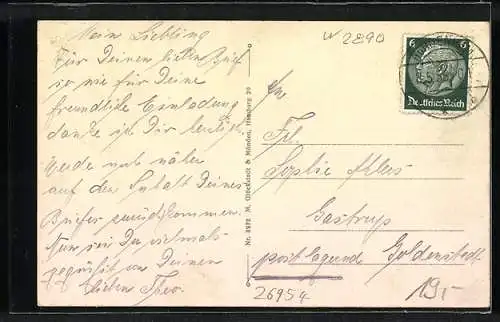 Mein Liebling
Für Deinen lieben Brief
so wie für Deine
freundliche Einladung
danke ich Dir herzlich.
Werde noch näher
auf den Inhalt Deines
Briefes zurückkommen.
Nun sei Du vielmals
gegrüßt von Deinen
lieben Theo.
Nr. 8492 M. Glückstadt & Münden, Hamburg 20
W 2890
6 6
Deutsches Reich
Frl.
Sophie Ahlers
Gastrup
postlagernd Goldenstedt
26954
19,-